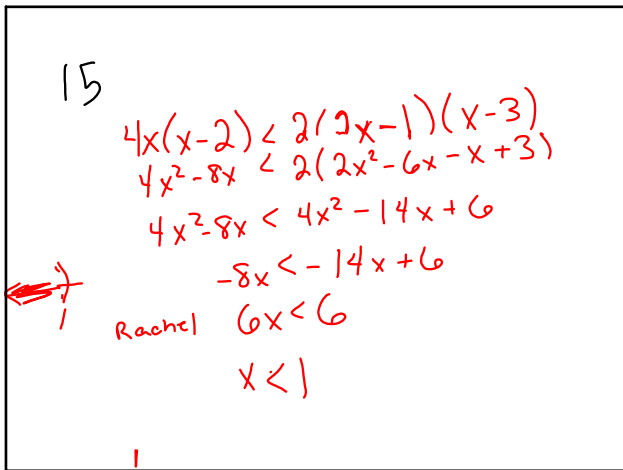 15
4x(x-2) < 2(2x-1)(x-3)
4x²-8x < 2(2x²-6x-x+3)
4x²-8x < 4x²-14x+6
-8x < -14x+6
)
1
Rachel 6x<6
x<1